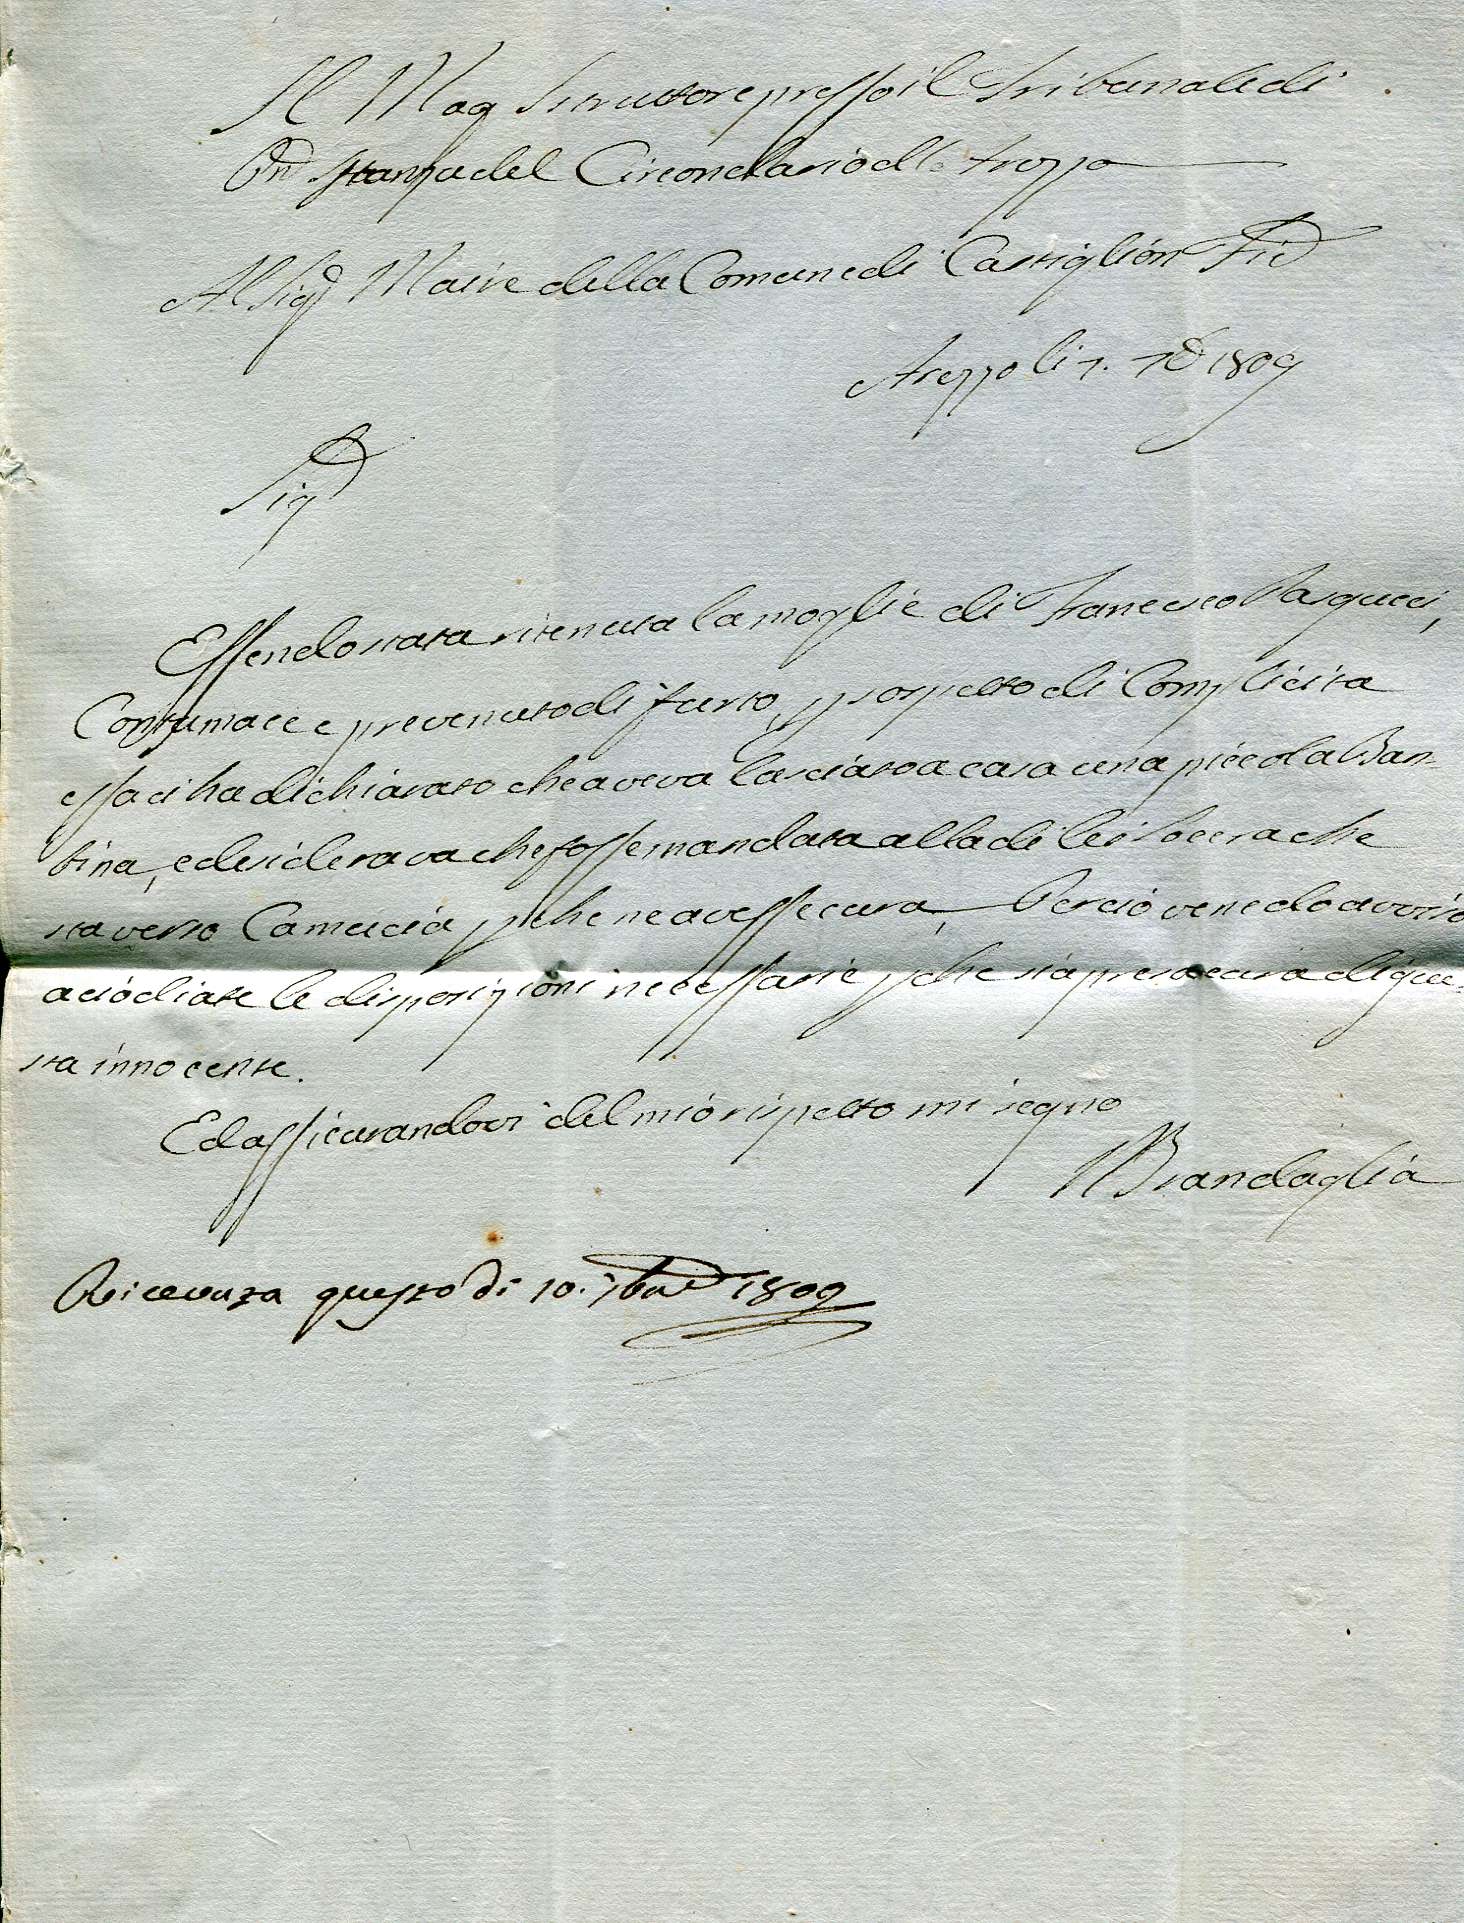 Il Mag Istruttore presso il Tribunale di
Pri Istanza del Circondario d'Arezzo
Al Sigr Maire della Comune di Castiglion Fio
Arezzo li 7. 7e 1809
Sigr
Essendo stata ritenuta la moglie di Francesco Pasqucci,
Contumace e prevenuto di furto, p sospetto di Complicita
essa ci ha dichiarato che aveva lasciato a casa una piccola Bam-
bina, e desiderava che fosse mandata alla di lei Socera che
sta verso Camucia p che ne avesse cura, Perciò ve ne do avviso
aciò diate le disposizioni necessarie p che sia presa cura di que-
sta innocente.
Ed assicurandovi del mio rispetto mi segno
Brandaglia
Ricevuta questo dì 10. 7bre 1809